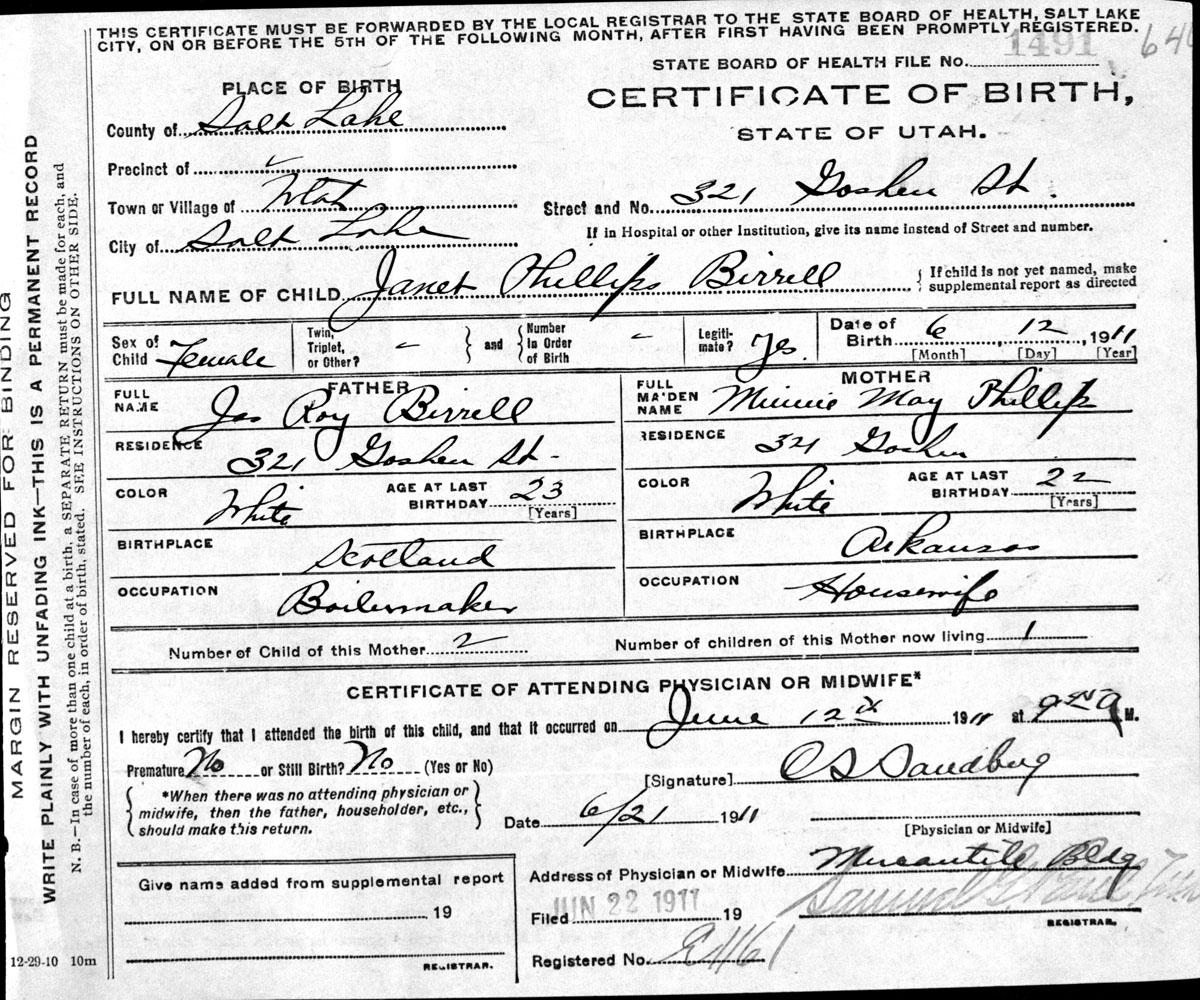 THIS CERTIFICATE MUST BE FORWARDED BY THE LOCAL REGISTRAR TO THE STATE BOARD OF HEALTH, SALT LAKE
CITY, ON OR BEFORE THE 5TH OF THE FOLLOWING MONTH, AFTER FIRST HAVING BEEN PROMPTLY REGISTERED.
1491
STATE BOARD OF HEALTH FILE No.
PLACE OF BIRTH
CERTIFICATE OF BIRTH,
STATE OF UTAH.
County of Salt Lake
Precinct of
Town or Village of
Street and No. 321 Goshen St.
City of Salt Lake
If in Hospital or other Institution, give its name instead of Street and number.
FULL NAME OF CHILD Janet Phillips Birrell
{ If child is not yet named, make
supplemental report as directed
Sex of Child Female
Twin, Triplet, or Other? –
} and { Number In Order of Birth –
Legitimate? Yes.
Date of Birth 6, 12, 1911
[Month] [Day] [Year]
FATHER
FULL NAME Jas Roy Birrell
RESIDENCE 321 Goshen St-
COLOR White
AGE AT LAST BIRTHDAY 23
[Years]
BIRTHPLACE Scotland
OCCUPATION Boilermaker
MOTHER
FULL MAIDEN NAME Minnie May Phillips
RESIDENCE 321 Goshen
COLOR White
AGE AT LAST BIRTHDAY 22
[Years]
BIRTHPLACE Arkansas
OCCUPATION Housewife
Number of Child of this Mother 2
Number of children of this Mother now living 1
CERTIFICATE OF ATTENDING PHYSICIAN OR MIDWIFE*
I hereby certify that I attended the birth of this child, and that it occurred on June 12th 1911 at 9 A M.
Premature No or Still Birth? No (Yes or No)
[Signature] C S Sandberg
{ *When there was no attending physician or
midwife, then the father, householder, etc.,
should make this return. }
Date 6/21 1911
[Physician or Midwife]
Address of Physician or Midwife Mercantile Bldg
Give name added from supplemental report
19
REGISTRAR.
Filed JUN 22 1911 19
Samuel G.
REGISTRAR.
Registered No. E1161
12-29-10 10m
MARGIN RESERVED FOR BINDING
WRITE PLAINLY WITH UNFADING INK—THIS IS A PERMANENT RECORD
N. B.—In case of more than one child at a birth, a SEPARATE RETURN must be made for each, and
the number of each, in order of birth, stated. SEE INSTRUCTIONS ON OTHER SIDE.